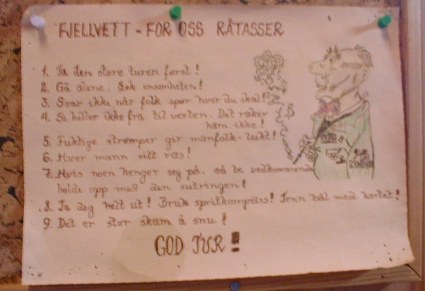 FJELLVETT - FOR OSS RÅTASSER
1. Ta den store turen først!
2. Gå alene. Søk ensomheten!
3. Svar ikke når folk spør hvor du skal!
4. Se bilder ikke fra til verten. Det raker
ham ikke!
5. Fuktige strømper gir mannfolk-lukt!
6. Hver mann sitt ras!
7. Hvis noen henger seg på, så be vedkommende
holde opp med den sutringen!
8. Ta deg helt ut! Bruk spritkompass! Tenn bål med kartet!
9. Det er stor skam å snu!
GOD TUR!!